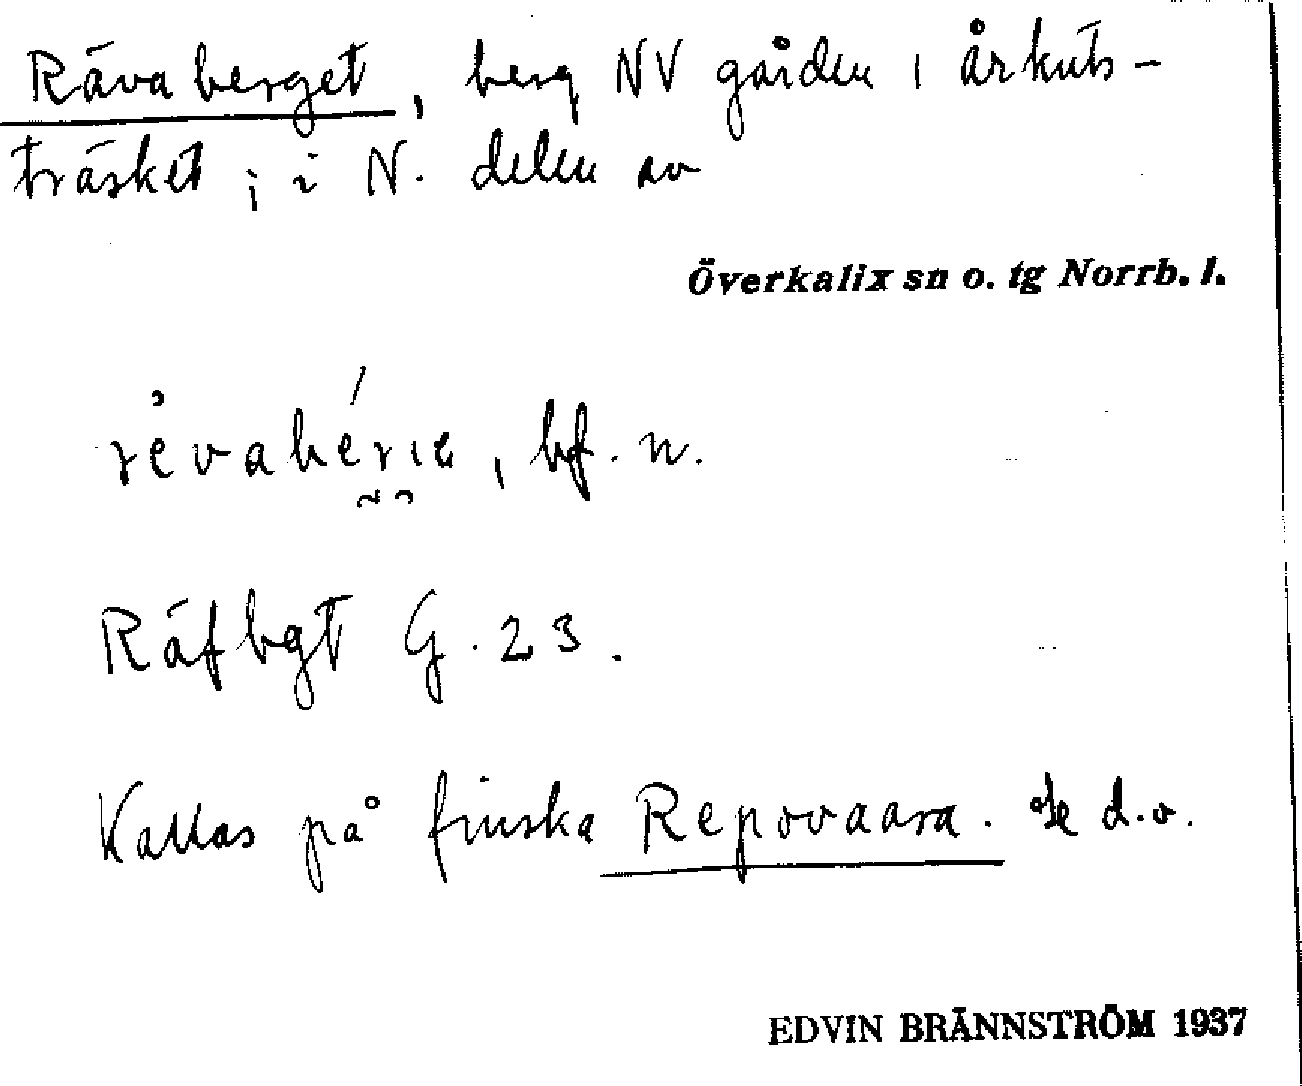 Rävaberget, berg NV gården i Årkuts-
träsket; i N. delen av
Överkalix sn o. tg Norrb. l.
bf. n.
Räfbgt G. 23.
Kallas på finska Repovaara. Se d.o.
EDVIN BRÄNNSTRÖM 1937